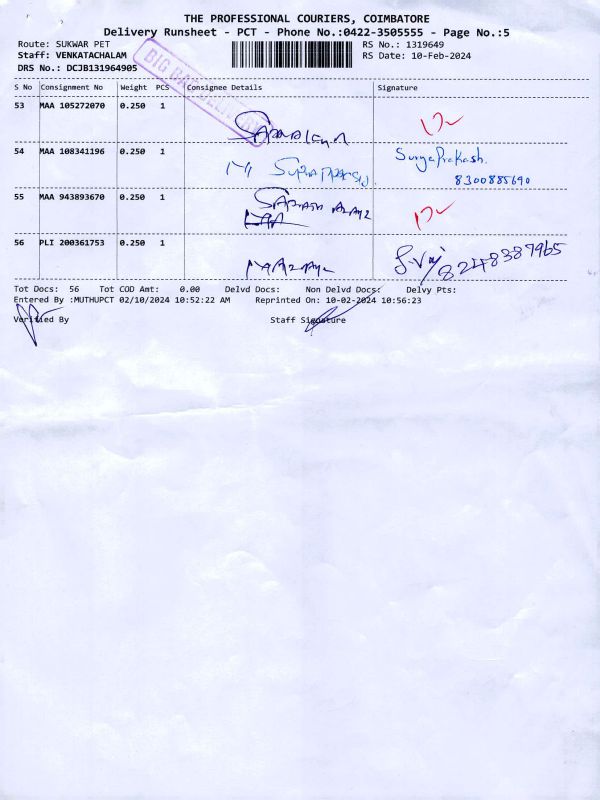 THE PROFESSIONAL COURIERS, COIMBATORE
Delivery Runsheet - PCT - Phone No.:0422-3505555 - Page No.:5
Route: SUKWAR PET RS No.: 1319649
Staff: VENKATACHALAM RS Date: 10-Feb-2024
DRS No.: DCJB131964905
BIG BAG DELIVERY
S No Consignment No Weight PCS Consignee Details Signature
53 MAA 105272070 0.250 1
54 MAA 108341196 0.250 1 Surya Prakash.
8300885690
55 MAA 943893670 0.250 1
56 PLI 200361753 0.250 1 8248387965
Tot Docs: 56 Tot COD Amt: 0.00 Delvd Docs: Non Delvd Docs: Delvy Pts:
Entered By :MUTHUPCT 02/10/2024 10:52:22 AM Reprinted On: 10-02-2024 10:56:23
Verified By Staff Signature